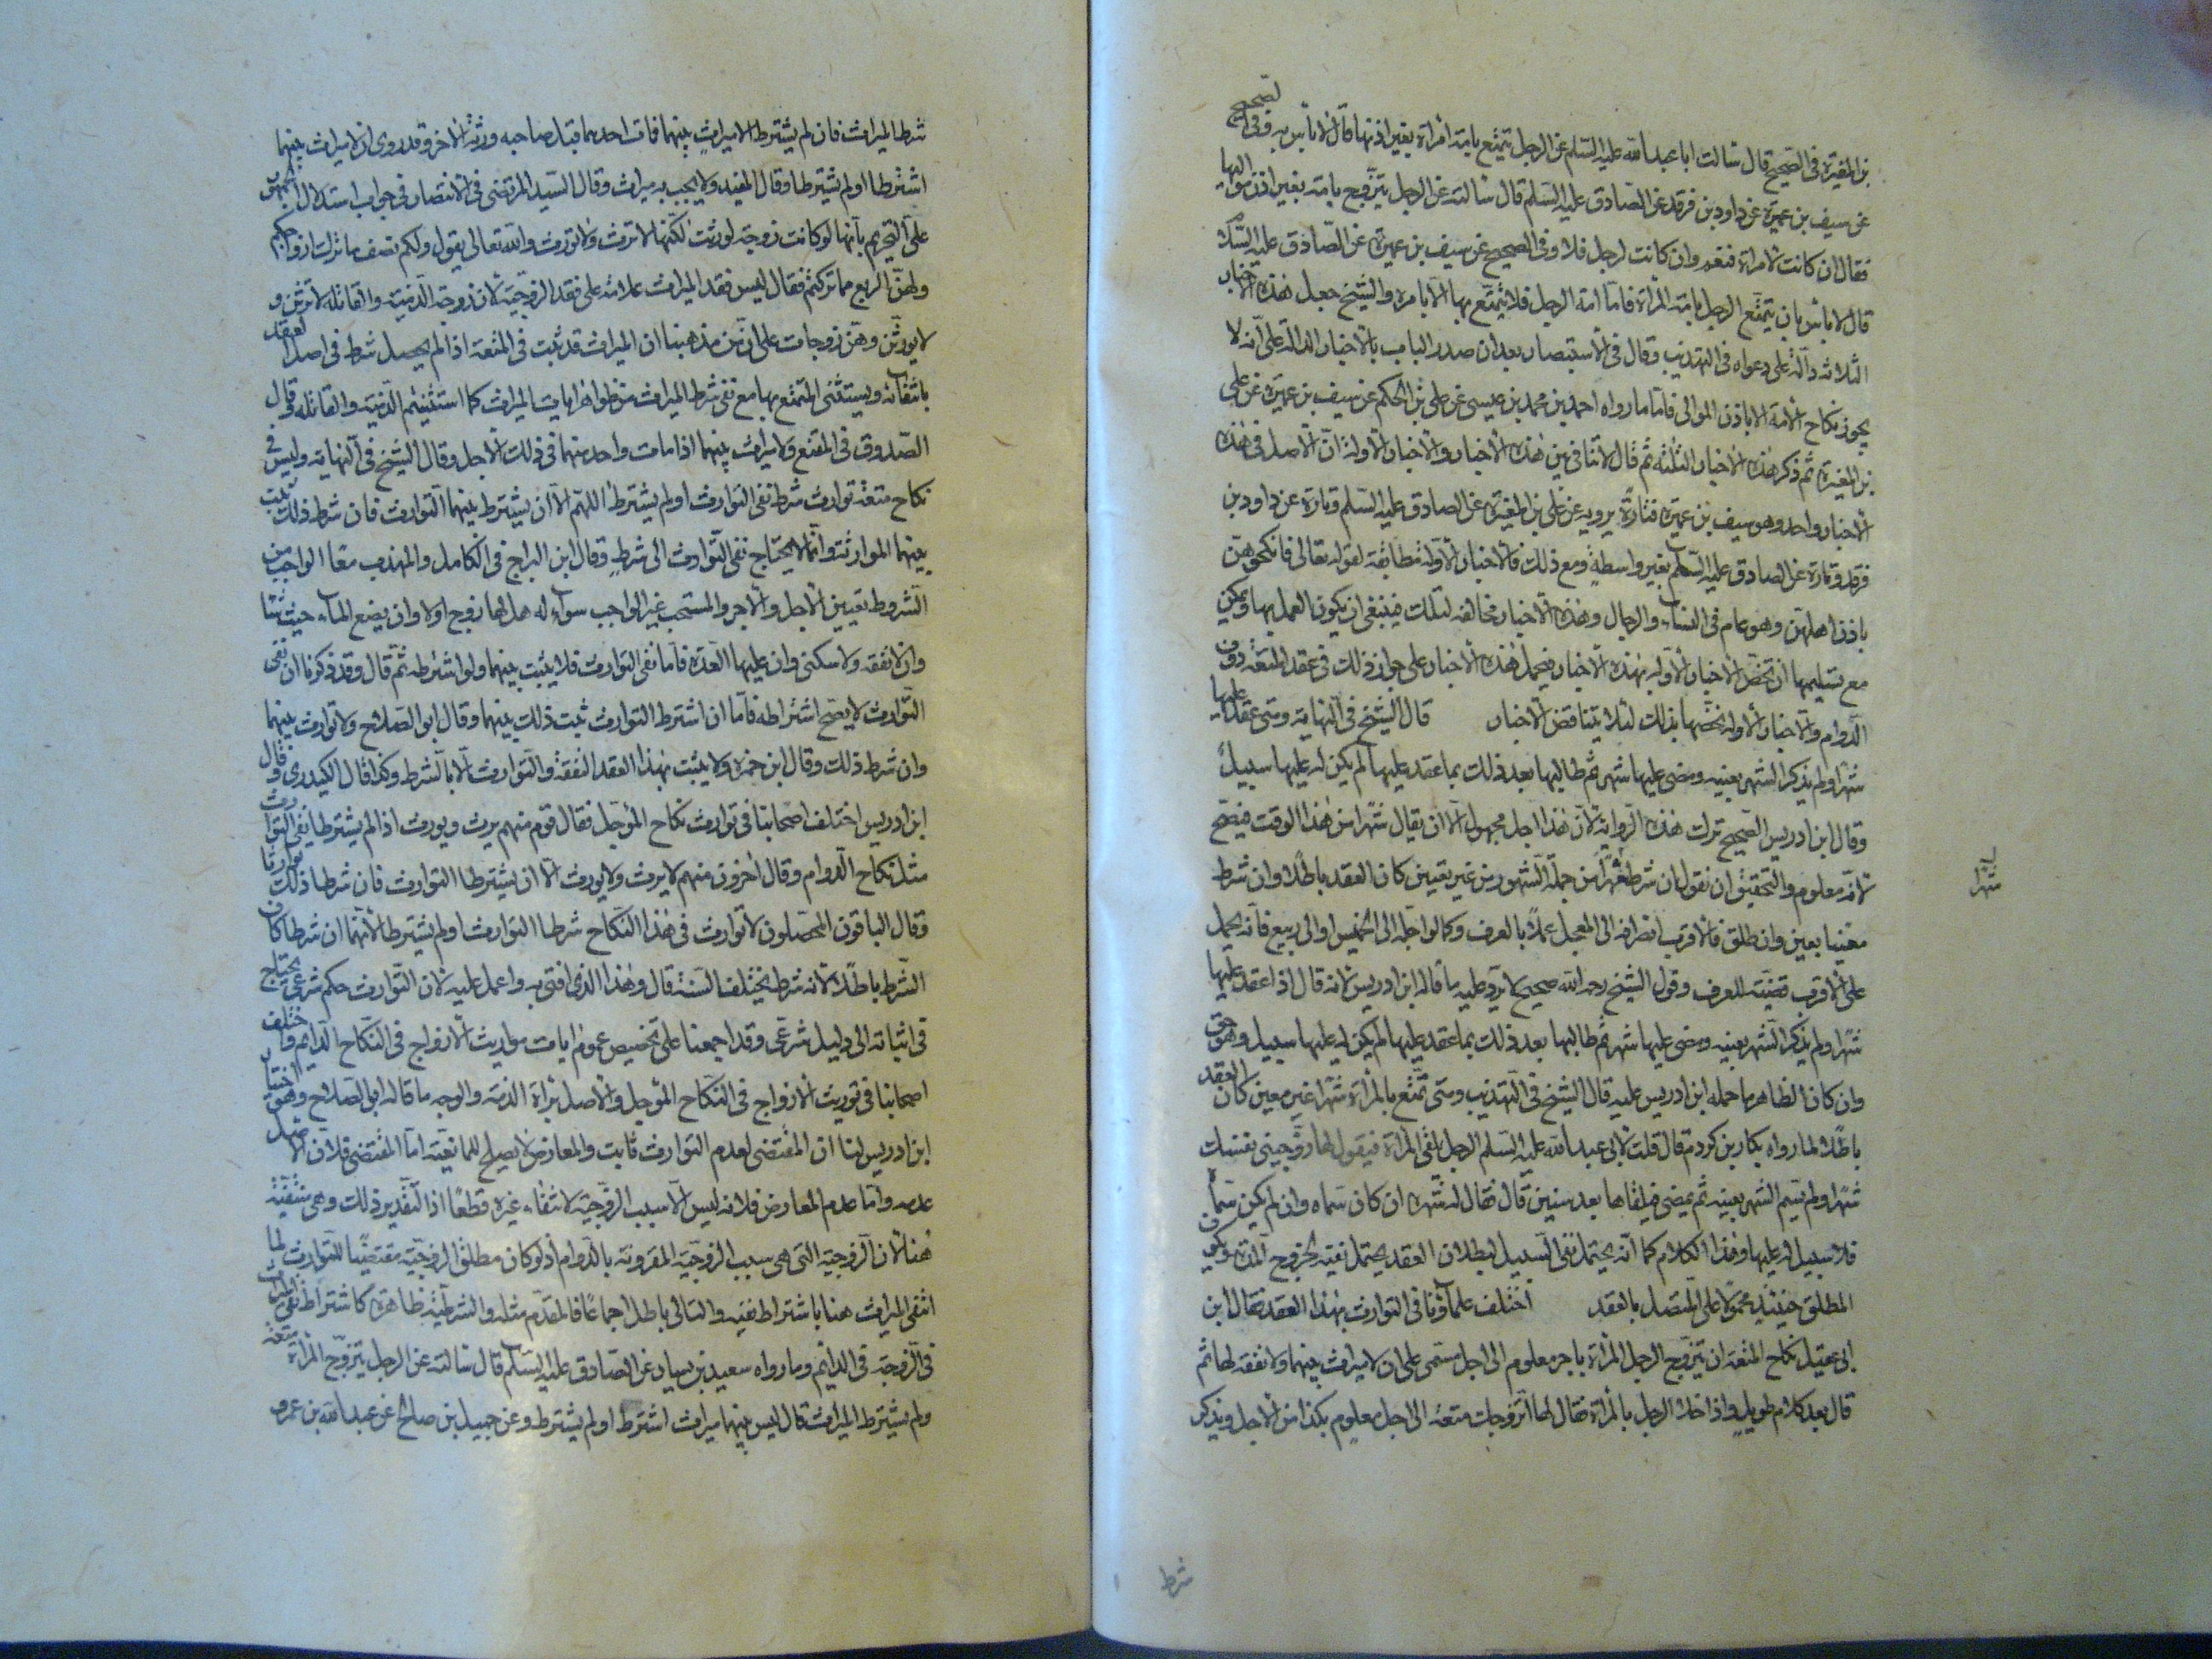 بن المغيرة في الصحيح قال سالت ابا عبد الله عليه السلم عن الرجل يتمتع بامة امراة بغير اذنها قال لا باس به وفى الصحيح
عن سيف بن عميرة عن داود بن فرقد عن الصادق عليه السلم قال سالته عن الرجل يتزوج بامة بغير اذن مواليها
فقال ان كانت لامراة فنعم وان كانت لرجل فلا وفى الصحيح عن سيف بن عميرة عن الصادق عليه السلم
قال لا باس بان يتمتع الرجل بامة المراة فاما امة الرجل فلا يتمتع بها الا بامره والشيخ جعل هذه الاخبار
الثلاثه دالة على دعواه في التهذيب وقال في الاستبصار بعد ان صدر الباب بالاخبار الدالة على انه لا
يجوز نكاح الامة الا باذن الموالى فاما ما رواه احمد بن محمد بن عيسى عن على بن الحكم عن سيف بن عميرة عن على
بن المغيرة ثم ذكر هذه الاخبار الثلثه ثم قال لا تنافى بين هذه الاخبار والاخبار الاولة لان الاصل في هذه
الاخبار واحد وهو سيف بن عميرة فتارة يرويه عن على بن المغيرة عن الصادق عليه السلم وتارة عن داود بن
فرقد وتارة عن الصادق عليه السلم بغير واسطة ومع ذلك فالاخبار الاولة مطابقة لقوله تعالى فانكحوهن
باذن اهلهن وهو عام في النساء والرجال وهذه الاخبار مخالفه لتلك فينبغى ان يكون العمل بها ويمكن
مع تسليمها ان نخص الاخبار الاولة بهذه الاخبار فيحمل هذه الاخبار على جواز ذلك في عقد المتعة دون
الدوام والاخبار الاولة نخصها بذلك لئلا يتناقض الاخبار قال الشيخ في النهاية ومتى عقد عليها
شهرا ولم يذكر الشهر بعينه ومضى عليها شهر ثم طالبها بعد ذلك بما عقد عليها لم يكن له عليها سبيل
وقال ابن ادريس الصحيح ترك هذه الرواية لان هذا اجل مجهول الا ان يقال شهرا من هذا الوقت فيصح
لانه معلوم والتحقيق ان نقول ان شرط شهرا من جملة الشهور من غير تعيين كان العقد باطلا وان شرط
معينا بعين وان طلق فالاقرب انصرافه الى المعجل عملا بالعرف وكما لو اجله الى الخميس او الى ربيع فانه يحمل
على الاقرب قضية للعرف وقول الشيخ رحمه الله صحيح لا يرد عليه ما قاله ابن ادريس لانه قال اذا عقد عليها
شهرا ولم يذكر الشهر بعينه ومضى عليها شهر ثم طالبها بعد ذلك بما عقد عليها لم يكن له عليها سبيل وهو حق
وان كان الظاهر ما حمله ابن ادريس عليه قال الشيخ في التهذيب ومتى تمتع بالمراة شهرا غير معين كان العقد
باطلا لما رواه بكار بن كردم قال قلت لابى عبد الله عليه السلم الرجل يلقى المراة فيقول لها زوجينى نفسك
شهرا ولم يسم الشهر بعينه ثم يمضى فيلقاها بعد سنين قال فقال له شهره ان كان سماه وان لم يكن سماه
فلا سبيل له عليها وهذا الكلام كما انه يحتمل نفى السبيل لبطلان العقد يحتمل نفيه لخروج المدة ويكون
المطلق حينئذ محمولا على المتصل بالعقد اختلف علماؤنا في التوارث بهذا العقد فقال ابن
ابى عقيل نكاح المتعة ان يتزوج الرجل المراة باجر معلوم الى اجل مسمى على ان لا ميراث بينهما ولا نفقة لها ثم
قال بعد كلام طويل واذا خلا الرجل بالمراة فقال لها اتزوجك متعة الى اجل معلوم بكذا من الاجل ويذكر
شهرا
شرط
شرط الميراث فان لم يشترطا الا ميراث بينهما فمات احدهما قبل صاحبه ورثه الاخر وقد روى ان لا ميراث بينهما
اشترطا او لم يشترطا وقال المفيد ولا يجب به ميراث وقال السيد المرتضى في الانتصار في جواب استدلال الجمهور
على التحريم بانها لو كانت زوجة لورثت لكنها لا ترث ولا تورث والله تعالى يقول ولكم نصف ما ترك ازواجكم
ولهن الربع مما تركتم فقال ليس فقد الميراث علامة على فقد الزوجية لان زوجة الذمية والقاتلة لا ترثن و
لا يورثن وهن زوجات على ان من مذهبنا ان الميراث قد يثبت في المتعة اذا لم يحصل شرط في اصل العقد
بانتفائه ويستثنى المتمتع بها مع نفى شرط الميراث من ظواهر ايات الميراث كما استثنيتم الذمية والقاتلة وقال
الصدوق في المقنع ولا ميراث بينهما اذا مات واحد منهما في ذلك الاجل وقال الشيخ في النهاية وليس في
نكاح متعة توارث شرط نفى التوارث او لم يشترط اللهم الا ان يشترط بينهما التوارث فان شرط ذلك ثبت
بينهما الموارثة وانما لا يحتاج نفى التوارث الى شرط وقال ابن البراج في الكامل والمهذب معا الواجب من
الشروط تعيين الاجل والاجر والمستحب غير الواجب سواله هل لها زوج او لا وان يضع الماء حيث شا
وان لا نفقه ولا سكنى وان عليها العدة فاما نفى التوارث فلا يثبت بينهما ولو اشترطه ثم قال وقد ذكرنا ان نفى
التوارث لا يصح اشتراطه فاما ان اشترط التوارث ثبت ذلك بينهما وقال ابو الصلاح ولا توارث بينهما
وان شرط ذلك وقال ابن حمزة ولا يثبت بهذا العقد النفقة والتوارث الا بالشرط وكذا قال الكيدرى وقال
ابن ادريس اختلف اصحابنا في توارث نكاح المؤجل فقال قوم منهم يرث ويورث اذا لم يشترطا نفى التوارث
مثل نكاح الدوام وقال اخرون منهم لا يرث ولا يورث الا ان يشترطا التوارث فان شرطا ذلك توارثا
وقال الباقون المحصلون لا توارث في هذا النكاح شرطا التوارث او لم يشترطا لانهما ان شرطا كان
الشرط باطلا لانه شرط يخالف السنة قال وهذا الذي افتى به واعمل عليه لان التوارث حكم شرعى يحتاج
في اثباته الى دليل شرعى وقد اجمعنا على تخصيص عموم ايات مواريث الازواج في النكاح الدايم واختلف
اصحابنا في توريث الازواج في النكاح المؤجل والاصل براة الذمة والوجه ما قاله ابو الصلاح وهو اختيار
ابن ادريس لنا ان المقتضى لعدم التوارث ثابت والمعارض لا يصلح للمانعية اما المقتضى فلان الاصل
عدمه واما عدم المعارض فلانه ليس الا سبب الزوجية لانتفاء غيره قطعا اذ التقدير ذلك وهى منتفية
هنا لان الزوجية التى هى سبب الزوجية المقرونة بالدوام اذ لو كان مطلق الزوجية مقتضيا للتوارث لما
انتفى الميراث هنا باشتراط نفيه والتالى باطل اجماعا فالمقدم مثله والشرطية ظاهرة كاشتراط نفى الميراث
في الزوجة في الدايم وما رواه سعيد بن يسار عن الصادق عليه السلم قال سالته عن الرجل يتزوج المراة متعة
ولم يشترط الميراث قال ليس بينهما ميراث اشترط او لم يشترط وعن جميل بن صالح عن عبد الله بن عمرو